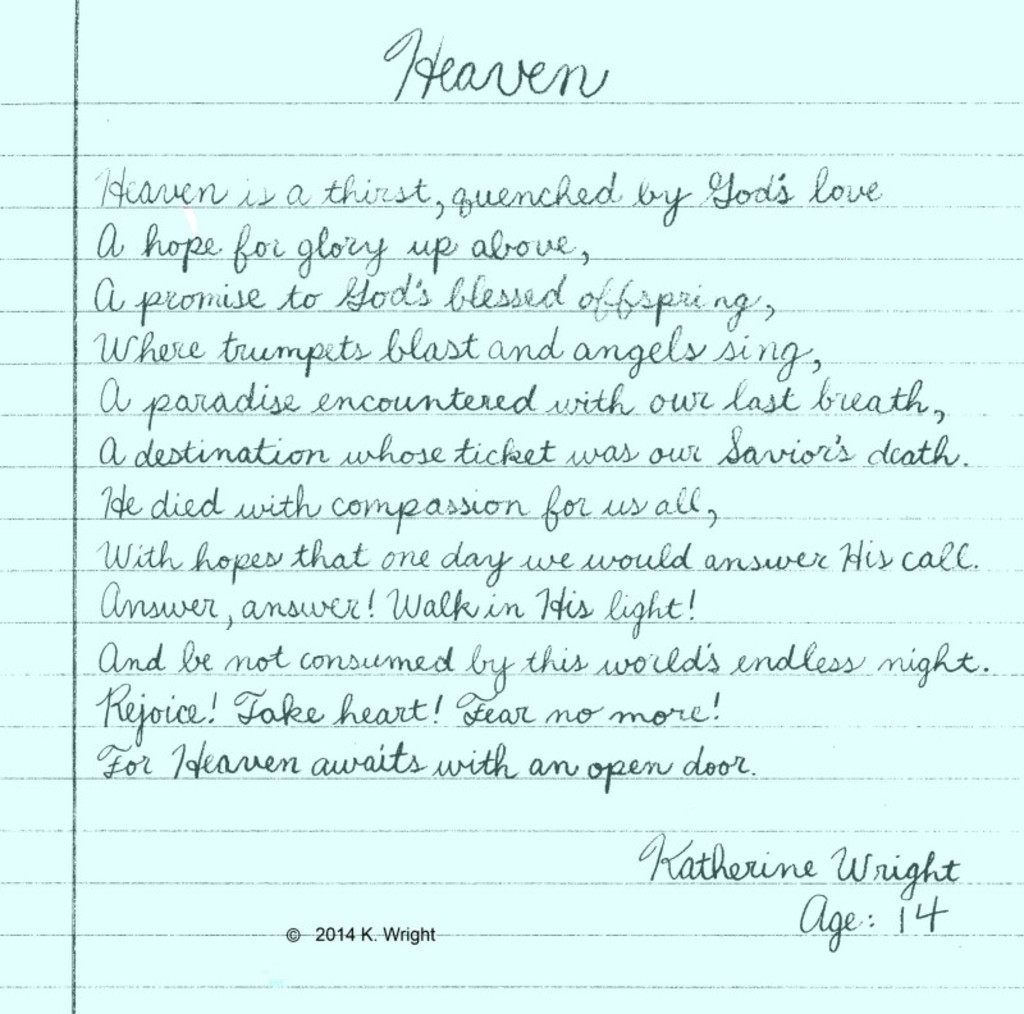 Heaven
Heaven is a thirst, quenched by God's love
A hope for glory up above,
A promise to God's blessed offspring,
Where trumpets blast and angels sing,
A paradise encountered with our last breath,
A destination whose ticket was our Savior's death.
He died with compassion for us all,
With hopes that one day we would answer His call.
Answer, answer! Walk in His light!
And be not consumed by this world's endless night.
Rejoice! Take heart! Fear no more!
For Heaven awaits with an open door.
Katherine Wright
Age: 14
© 2014 K. Wright